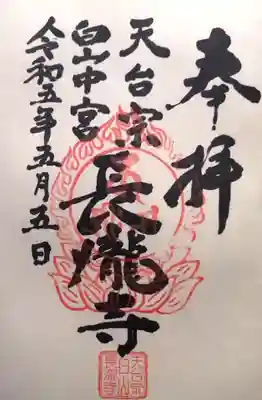 奉拝
天台宗
長瀧寺
白山中宮
令和五年五月五日
天台宗
白山
長瀧寺